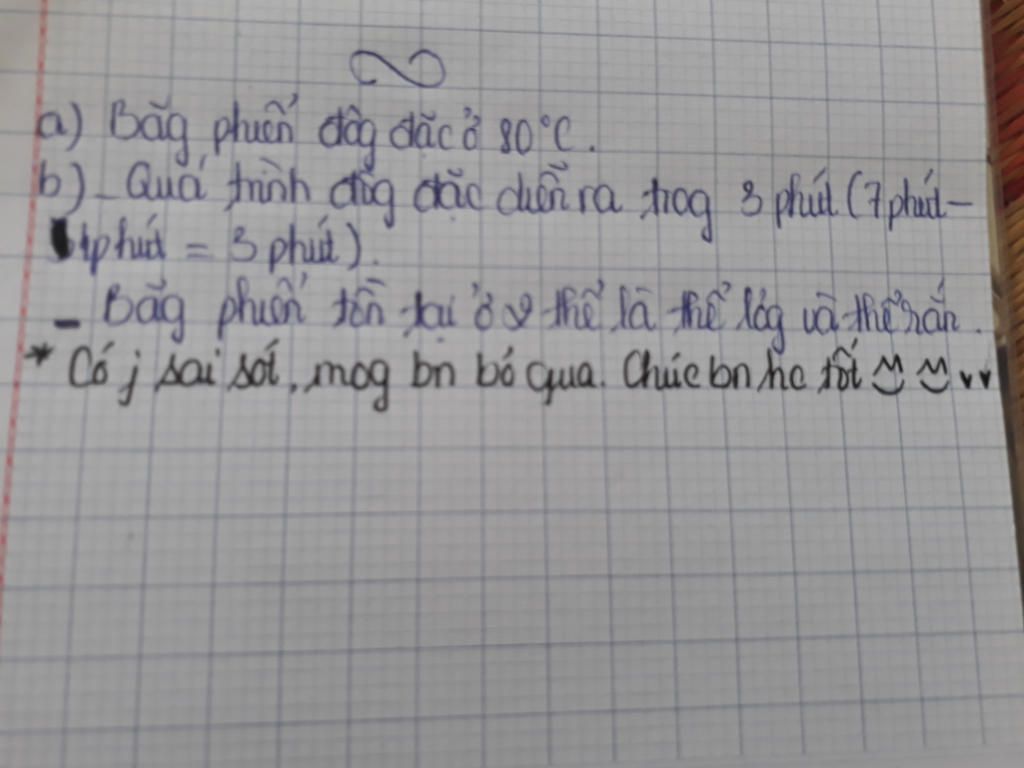 a) Băg phiến đôg đặc ở 80°C.
b) - Quá trình đôg đặc diễn ra trog 3 phút (7 phút -
4 phút = 3 phút).
- Băg phiến tồn tại ở 2 thể là thể lỏg và thể rắn.
* Có j sai sót, mog bn bỏ qua. Chúc bn hc tốt